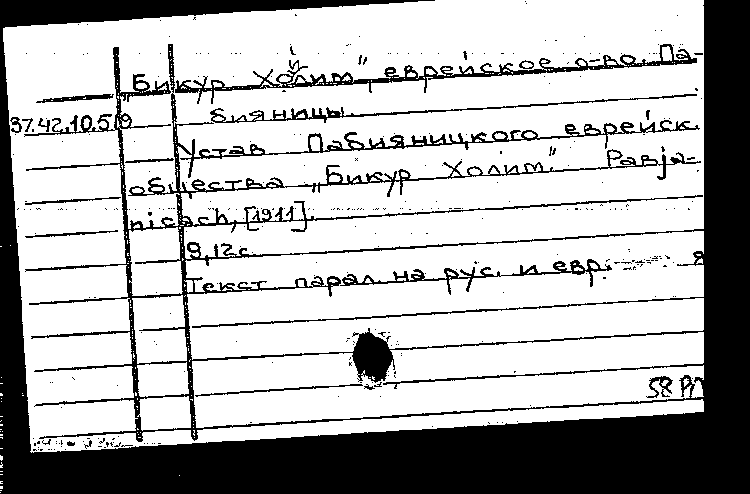 „Бикур Холим", еврейское о-во. Па-
37.42.10.519 бияницы.
Устав Пабияницкого еврейск.
общества „Бикур Холим." Pabja-
nicach, [1911].
9,12 с.
Текст парал. на рус. и евр. я
58 РП